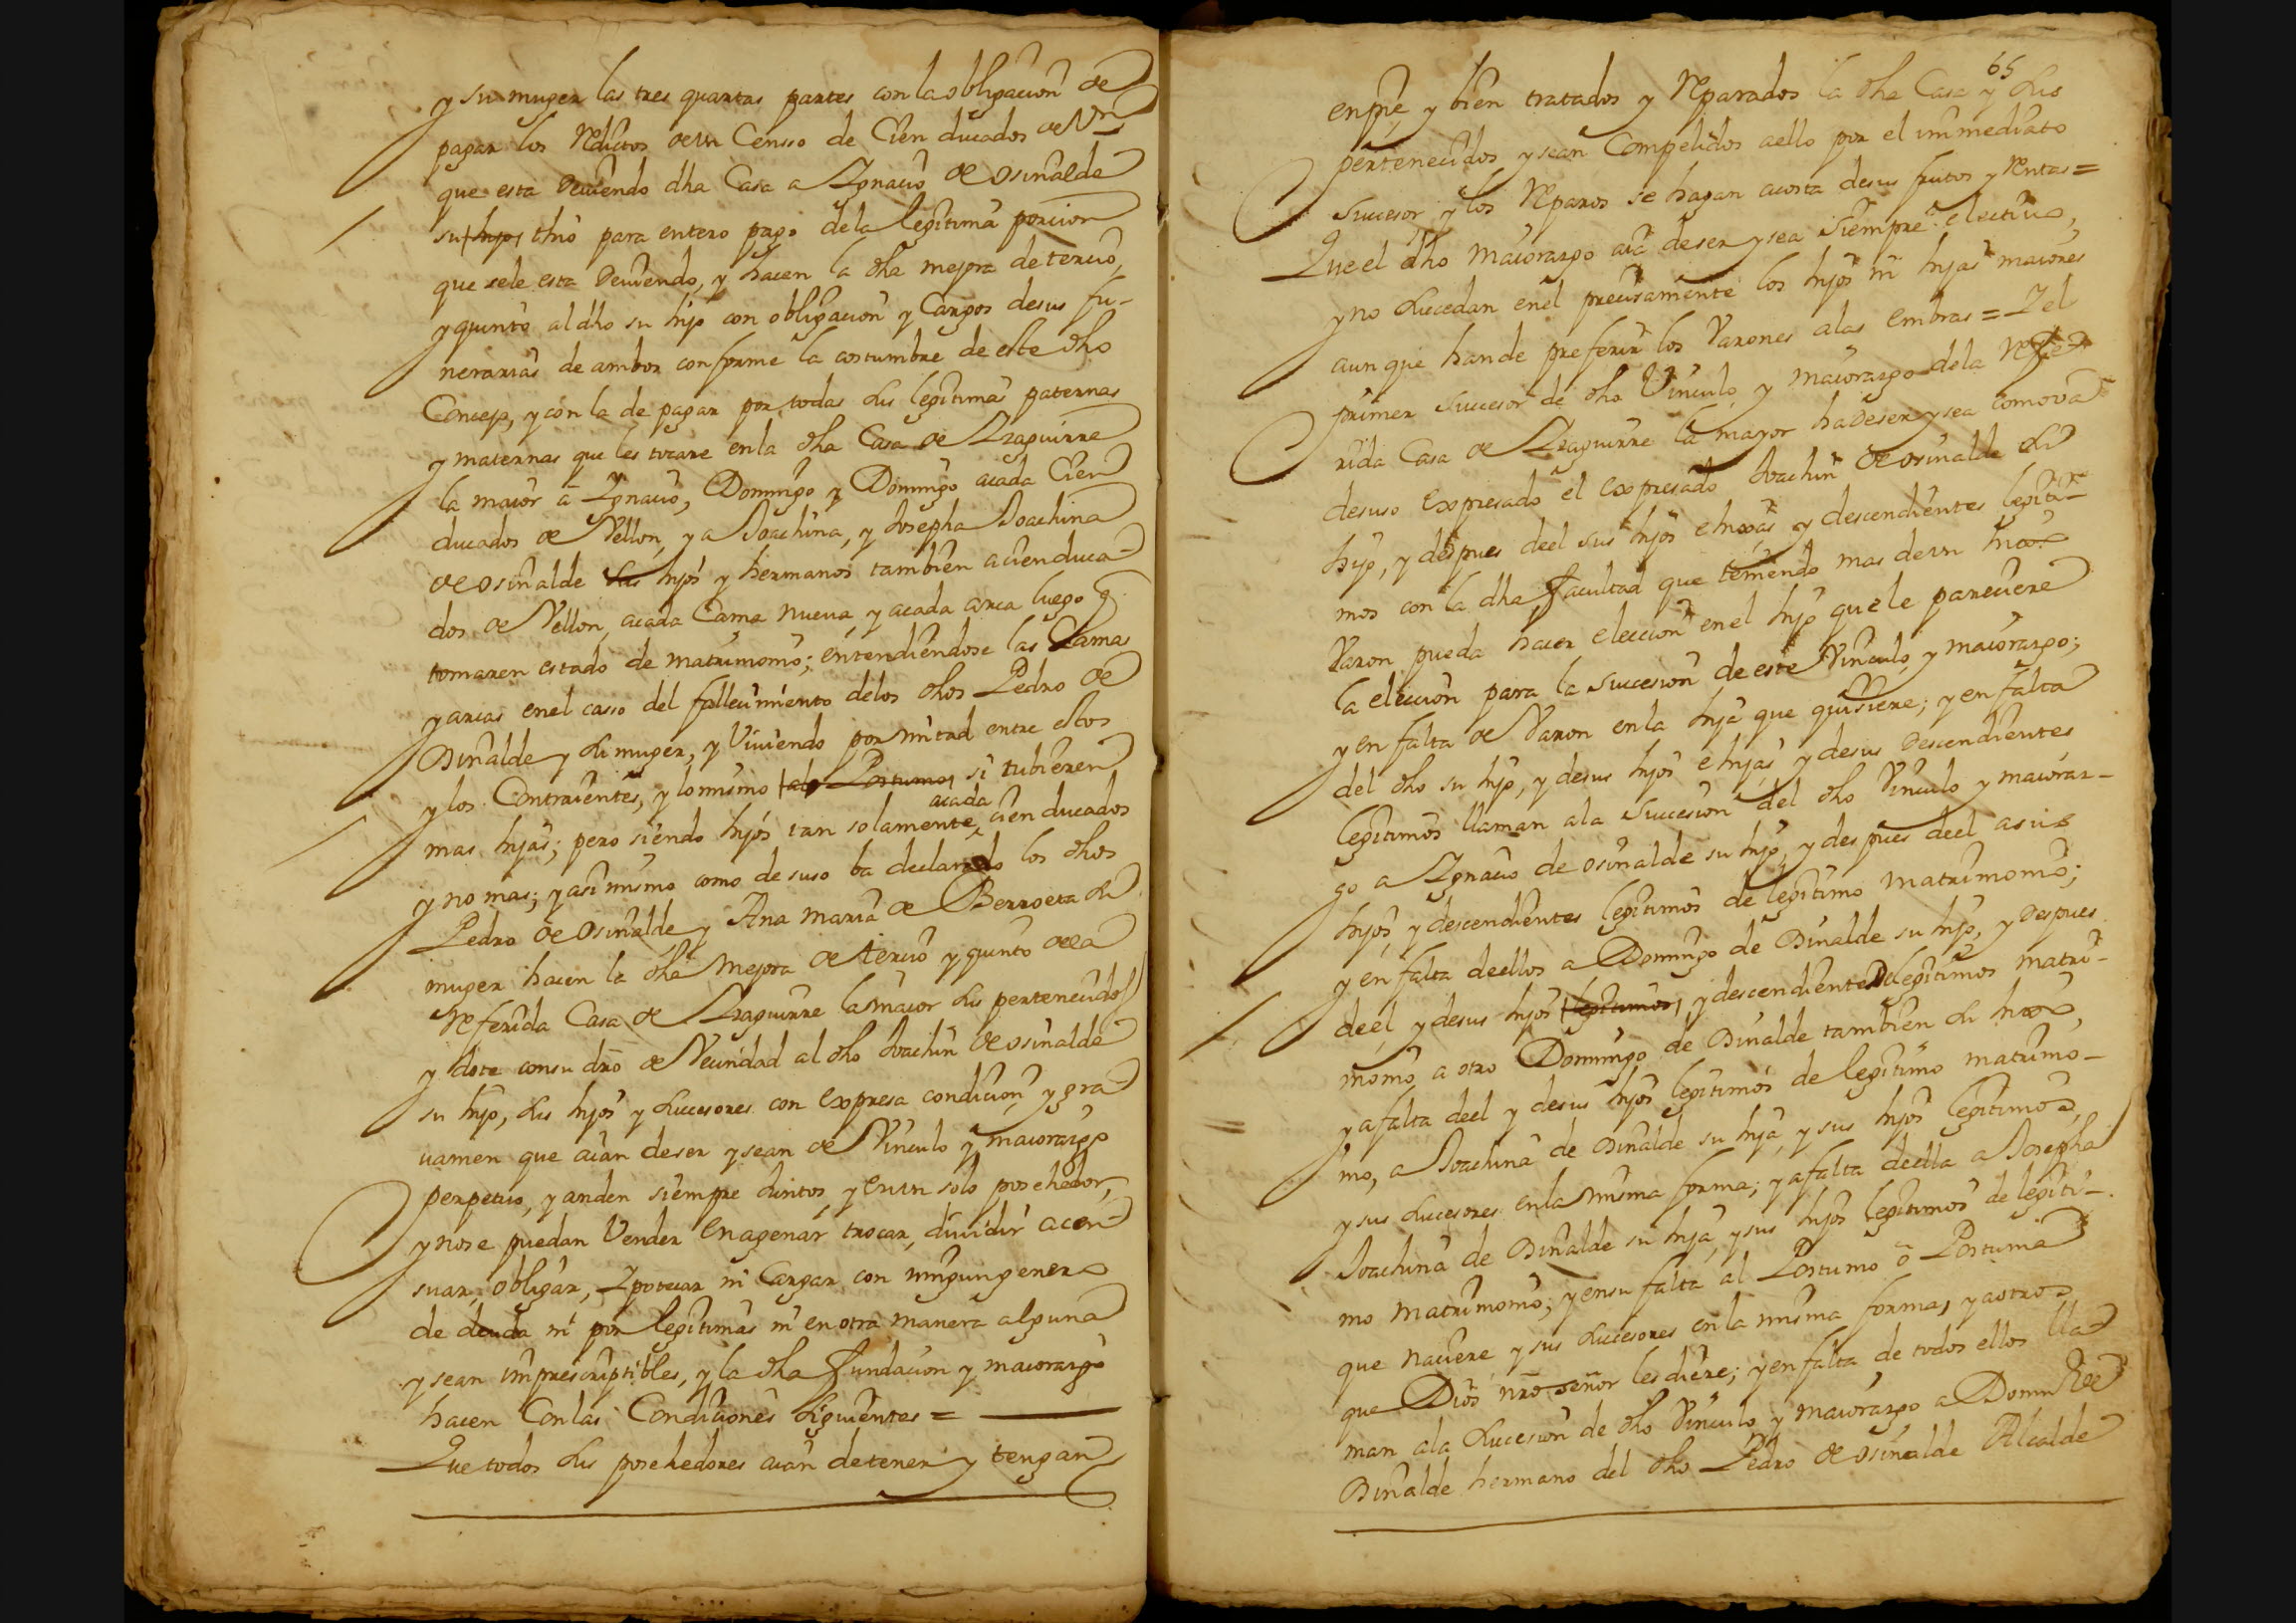 y su muger las tres quartas partes con la obligacion de
pagar los Reditos de un Censso de Cien ducados de Vn
que esta deviendo dha Casa a Ygnacio de osinalde
su hijo thio para entero pago de la legitima porcion
que sele esta deviendo, y hacen la dha mejora de tercio,
y quinto al dho su hijo con obligacion y Cargos desus fu-
nerarias de ambos conforme la costumbre de este dho
Concejo, y con la de pagar por todas sus legitimas paternas
y maternas que les tocare enla dha Casa de Yzaguirre
la maior a Ygnacio, Domingo y Domingo acada Cien
ducados de Vellon, y a Joachina, y Josepha Joachina
de osinalde sus hijos y hermanos tambien a cien duca-
dos de Vellon, acada Cama nueva, y acada arca luego q
tomaren estado de matrimonio; entendiendose las Camas
y arcas enel casso del fallecimiento delos dhos Pedro de
Osinalde y su muger, y viviendo por mitad entre estos
y los Contraientes, y lo mismo al Postumo, si tubieren
mas hijas; pero siendo hijos tan solamente, acada cien ducados
y no mas; y asi mismo como de suso ba declarado los dhos
Pedro de Osinalde y Ana maria de Berroeta su
muger hacen la dha Mejora de tercio y quinto dela
Referida Casa de Yzaguirre la maior sus pertenecidos
y dote consu dro de Vecindad al dho Joachin de osinalde
su hijo, sus hijos y sucesores con expresa condicion y gra
vamen que aian deser y sean de Vinculo y maiorazgo
perpetuo, y anden siempre juntos, y en un solo posehedor,
y nose puedan Vender Enagenar trocar, dividir acen
suar, obligar, Ypotecar ni Cargar con ningun genero
de deuda ni por legitimas ni en otra manera alguna
y sean imprescriptibles, y la dha fundacion y maiorazgo
hacen Con las Condiciones siguientes =
Que todos sus posehedores aian detener y tengan
65
enpie y bien tratados y Reparados la dha Casa y sus
pertenecidos, y sean Compelidos aello por el immediato
succesor, y los Reparos se hagan acosta desus frutos y Rentas =
Que el dho maiorazgo aia deser y sea siempre electivo,
y no sucedan enel precisamente los hijos ni hijas maiores
aunque hande preferir los Varones alas embras = Y el
primer succesor de dho Vinculo y maiorazgo dela Refe
rida Casa de Yzaguirre la mayor hadeser y sea como va
desuso expresado el expresado Joachin de osinalde su
hijo, y despues deel sus hijos e hixas y descendientes legiti-
mos con la dha facultad que teniendo mas de un hixo
Varon pueda hacer eleccion enel hijo que le pareciere
la eleccion para la succesion de este Vinculo, y maiorazgo;
y en falta de Varon enla hija que quisiere; y en falta
del dho su hijo, y desus hijos e hijas y desus descendientes
legitimos llaman ala succesion del dho Vinculo y maioraz-
go a Ygnacio de osinalde su hijo, y despues deel asus
hijos, y descendientes legitimos de legitimo matrimonio;
y en falta deellos a Domingo de Osinalde su hijo, y despues
deel, y desus hijos legitimos, y descendientes legitimos matri-
monio a otro Domingo de Osinalde tambien su hixo,
y a falta deel y desus hijos legitimos de legitimo matrimo-
nio, a Joachina de Osinalde su hija, y sus hijos legitimos,
y sus sucesores enla misma forma; y a falta deella a Josepha
Joachina de Osinalde su hija, y sus hijos legitimos de legiti-
mo matrimonio; y ensu falta al Postumo ô Postuma
que naciere y sus sucesores en la misma forma, y a otros
que Dios nro señor les diere; y en falta de todos ellos lla
man ala sucesion de dho Vinculo y maiorazgo a Domin de
Osinalde hermano del dho Pedro de osinalde Alcalde